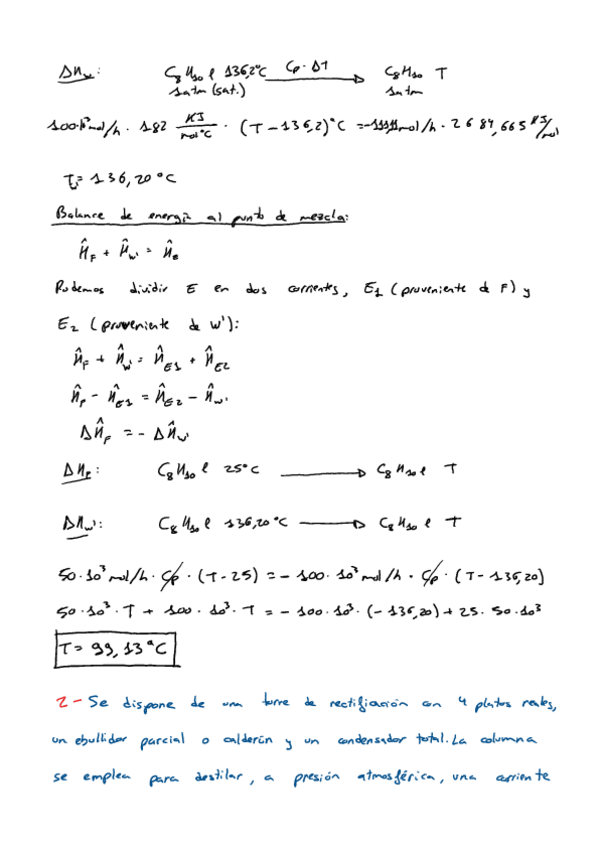 ΔH_w: C₈H₁₀ l 136,2°C Cp·ΔT → C₈H₁₀ T
1atm (sat.) 1atm
100·10³mol/h · 182 KJ/mol°C · (T-136,2)°C = mol/h · 2684,665 KJ/mol
T = 136,20°C
Balance de energía al punto de mezcla:
Ĥ_F + Ĥ_w' = Ĥ_E
Podemos dividir E en dos corrientes, E1 (proveniente de F) y
E2 (proveniente de W'):
Ĥ_F + Ĥ_w' = Ĥ_E1 + Ĥ_E2
Ĥ_F - Ĥ_E1 = Ĥ_E2 - Ĥ_w'
ΔĤ_F = - ΔĤ_w'
ΔH_F: C₈H₁₀ l 25°C → C₈H₁₀ l T
ΔH_w': C₈H₁₀ l 136,20°C → C₈H₁₀ l T
50·10³ mol/h · Cp · (T-25) = - 100·10³ mol/h · Cp · (T-136,20)
50·10³·T + 100·10³·T = - 100·10³·(-136,20) + 25·50·10³
T= 99,13°C
2- Se dispone de una torre de rectificación con 4 platos reales,
un ebullidor parcial o calderín y un condensador total. La columna
se emplea para destilar, a presión atmosférica, una corriente